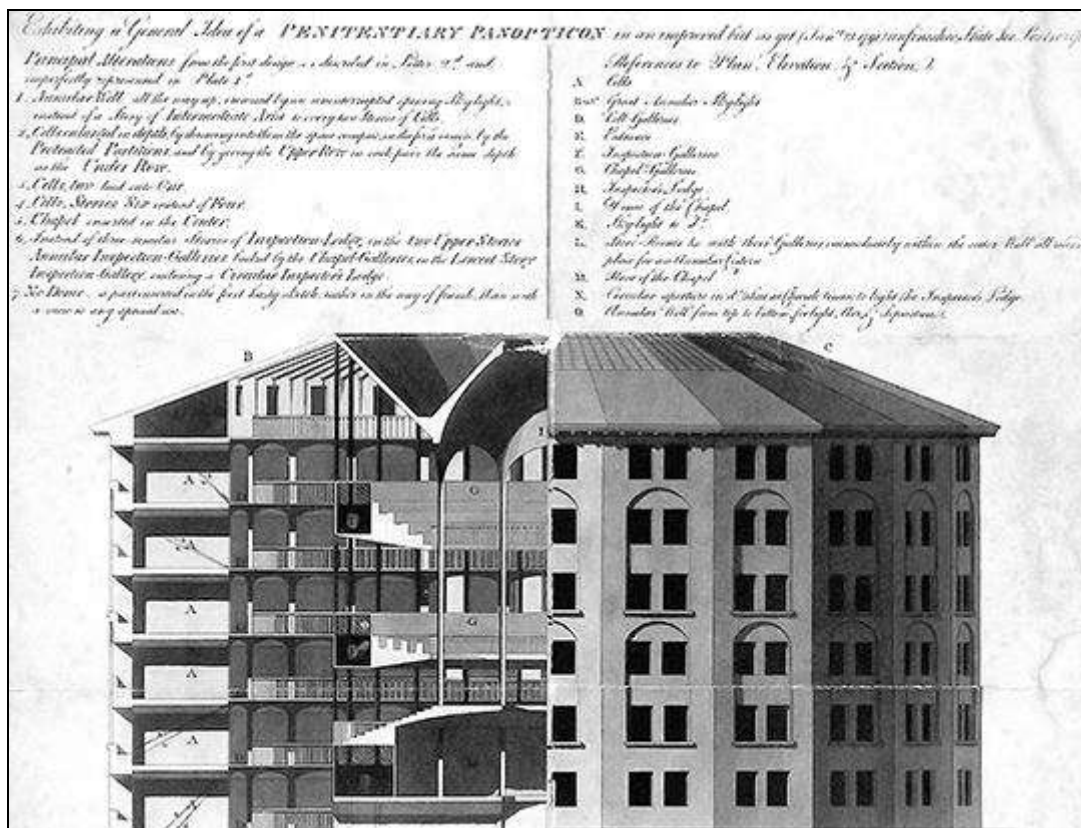 Exhibiting a General Idea of a PENITENTIARY PANOPTICON in an improved
Principal Alterations from the first design as described in Letter 2d and
imperfectly represented in Plate 1st
1. Annular Well all the way up, crowned by an uninterrupted opening Skylight,
instead of a Story of Intermediate Area to every two Stories of Cells.
2. Cells enlarged in depth, by throwing into them the space by the
Protracted Partitions and by giving the Upper Row in each pair the same depth
as the Under Row.
3. Cells, two laid into One.
4. Cells, Stories Six instead of Four.
5. Chapel inserted in the Center.
6. Instead of three annular Stories of Inspection Lodge, in the two Upper Stories
Annular Inspection-Galleries backed by the Chapel-Galleries, in the Lowest Story
Inspection-Gallery, enclosing a Circular Inspector's Lodge.
7. No Dome, a part inserted in the first hasty sketch, rather in the way of finish, than with
a view to any special use.
References to Plan, Elevation, & Section.
A. Cells
Great Annular Skylight
D. Cell Galleries
E. Entrance
F. Inspection Galleries
G. Chapel Galleries
H. Inspector's Lodge
I. Dome of the Chapel
K. Skylight to
L. Store Rooms &c with their Galleries immediately within the outer Wall all round
place for an Annular Cistern
M. Floor of the Chapel
N. Circular aperture in to light the Inspector's Lodge
O. Annular Well from top to bottom for light, Air, & Separation
B
C
I
A
G
A
A
G
A
A
A